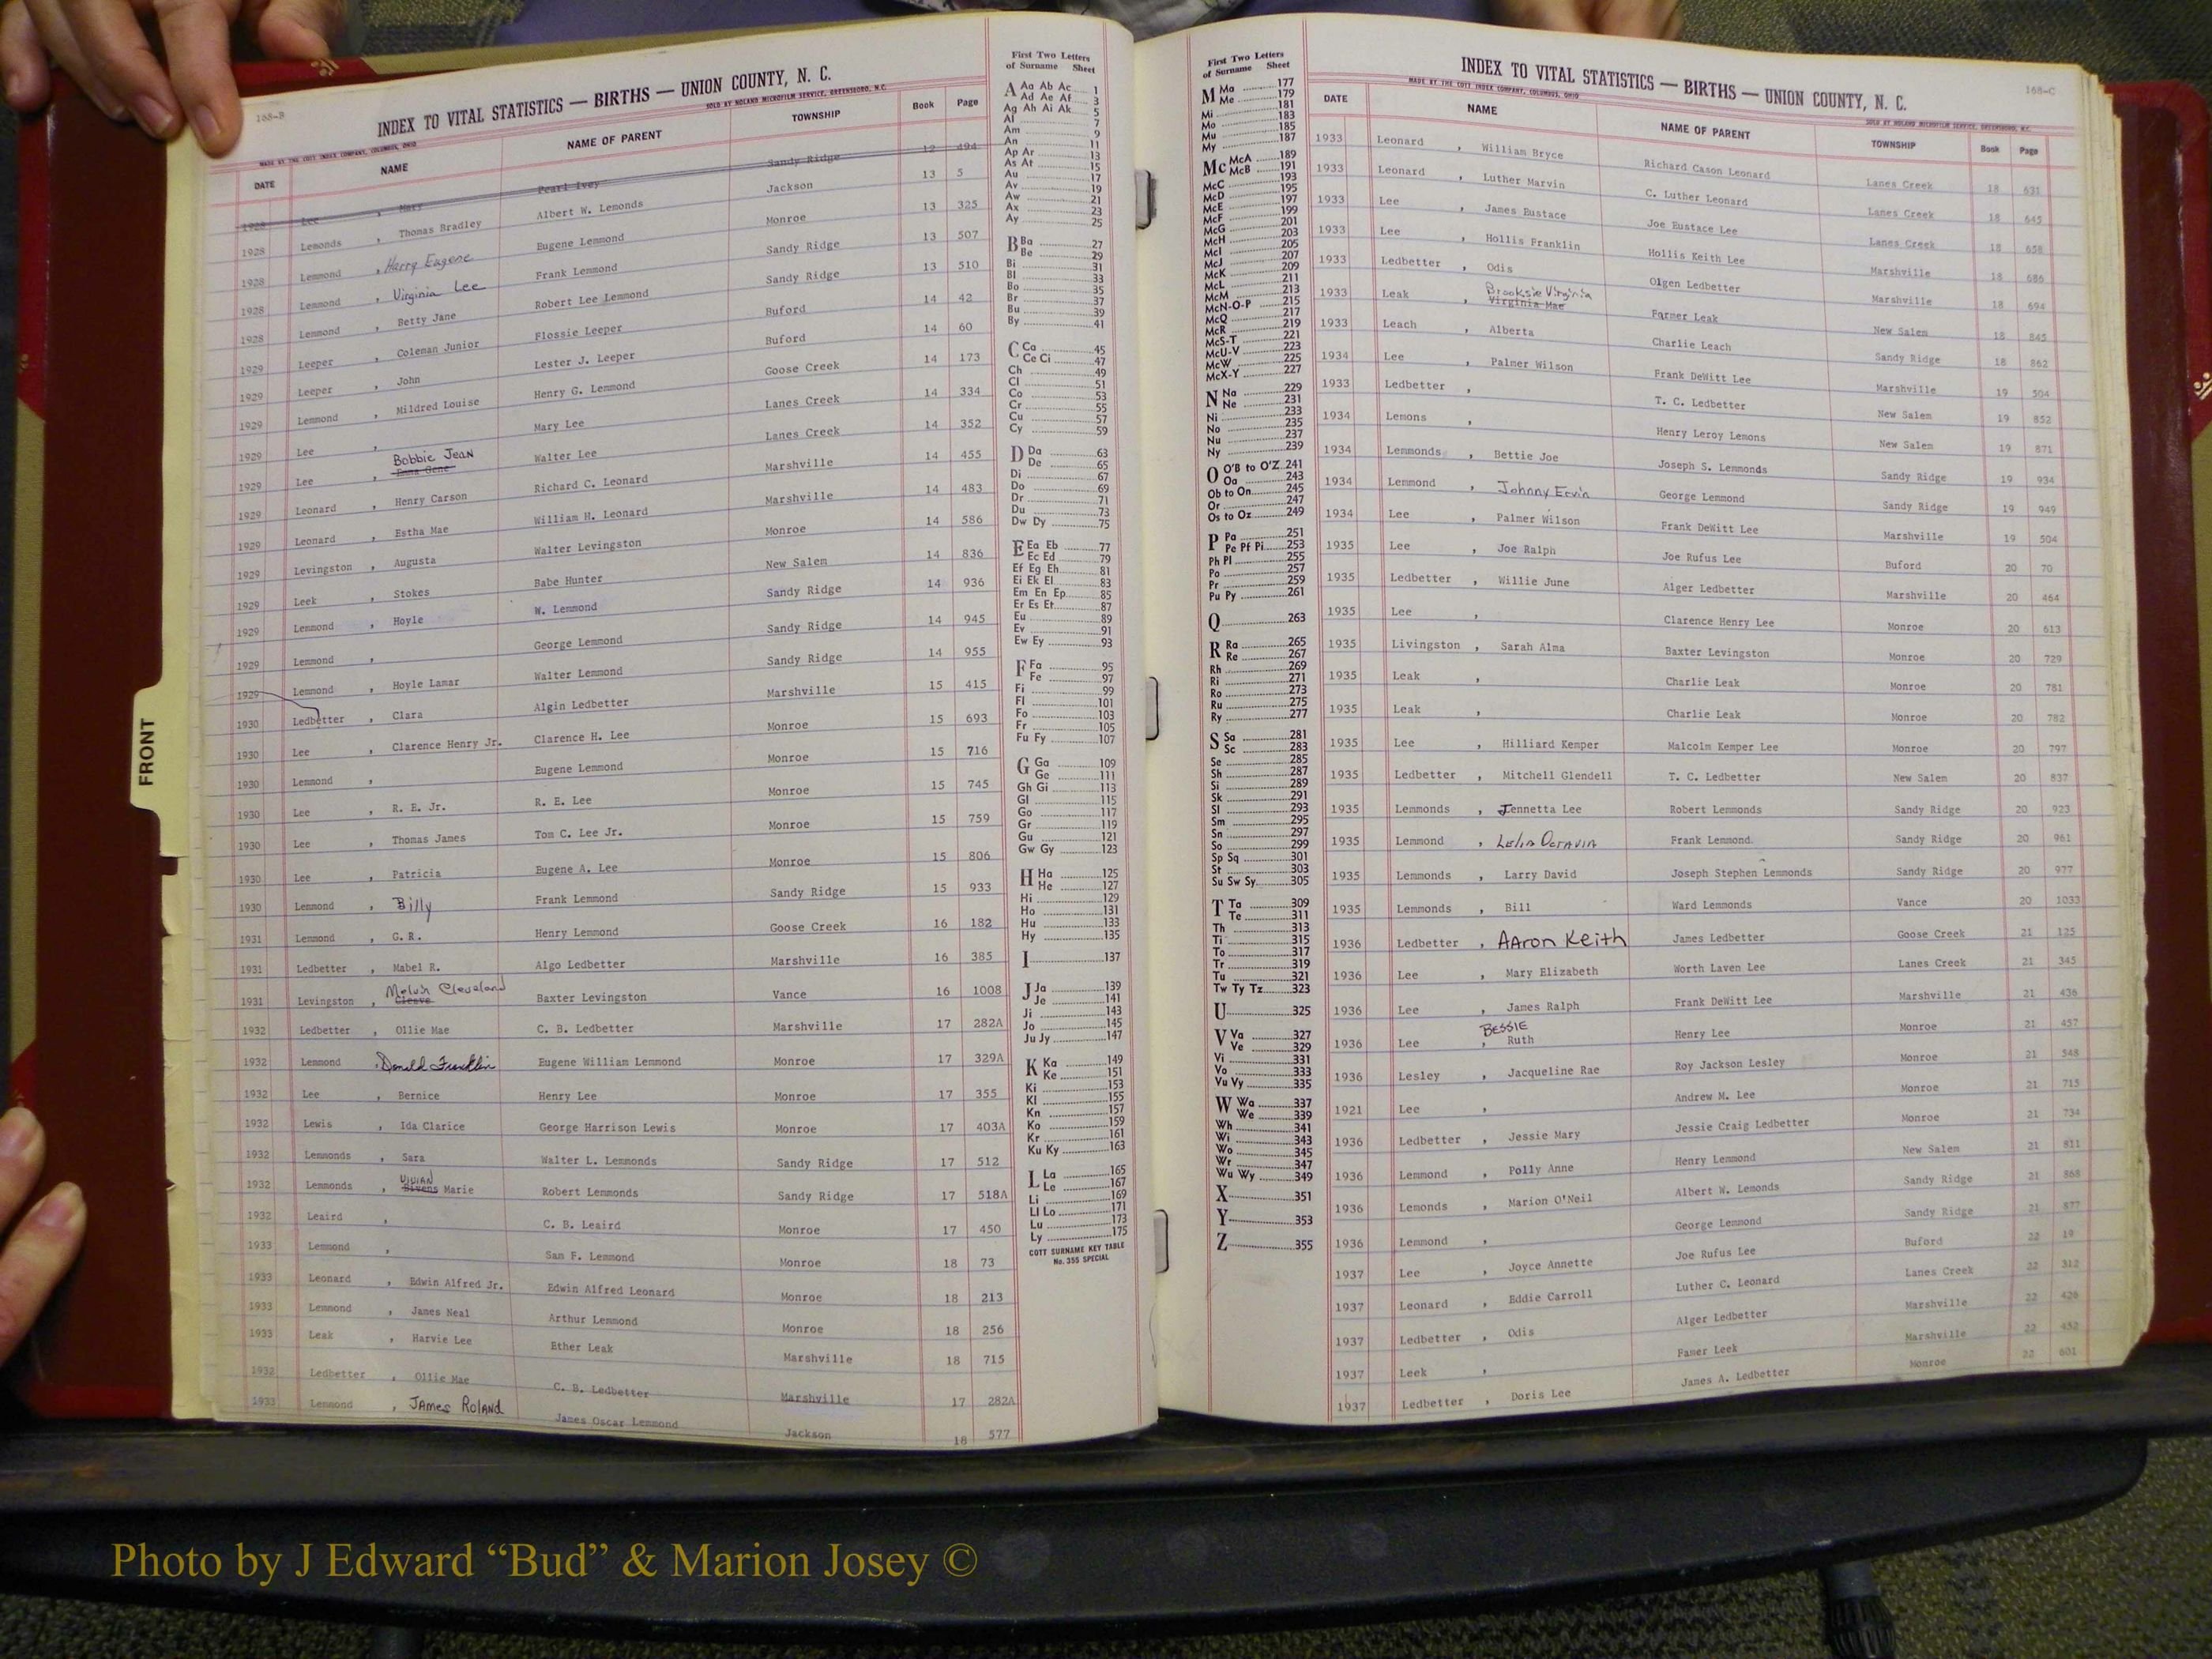 168-B
INDEX TO VITAL STATISTICS — BIRTHS — UNION COUNTY, N. C.
MADE BY THE COTT INDEX COMPANY, COLUMBUS, OHIO SOLD BY NOLAND MICROFILM SERVICE, GREENSBORO, N.C.
DATE NAME NAME OF PARENT TOWNSHIP Book Page
1928 Lee , Mary Pearl Ivey Sandy Ridge 12 494
1928 Lemonds , Thomas Bradley Albert W. Lemonds Jackson 13 5
1928 Lemmond , Harry Eugene Eugene Lemmond Monroe 13 325
1928 Lemmond , Virginia Lee Frank Lemmond Sandy Ridge 13 507
1928 Lemmond , Betty Jane Robert Lee Lemmond Sandy Ridge 13 510
1929 Leeper , Coleman Junior Flossie Leeper Buford 14 42
1929 Leeper , John Lester J. Leeper Buford 14 60
1929 Lemmond , Mildred Louise Henry G. Lemmond Goose Creek 14 173
1929 Lee , Mary Lee Lanes Creek 14 334
1929 Lee , Bobbie Jean Walter Lee Lanes Creek 14 352
1929 Leonard , Henry Carson Richard C. Leonard Marshville 14 455
1929 Leonard , Estha Mae William H. Leonard Marshville 14 483
1929 Levingston , Augusta Walter Levingston Monroe 14 586
1929 Leek , Stokes Babe Hunter New Salem 14 836
1929 Lemmond , Hoyle W. Lemmond Sandy Ridge 14 936
1929 Lemmond , George Lemmond Sandy Ridge 14 945
1929 Lemmond , Hoyle Lamar Walter Lemmond Sandy Ridge 14 955
1930 Ledbetter , Clara Algin Ledbetter Marshville 15 415
1930 Lee , Clarence Henry Jr. Clarence H. Lee Monroe 15 693
1930 Lemmond , Eugene Lemmond Monroe 15 716
1930 Lee , R. E. Jr. R. E. Lee Monroe 15 745
1930 Lee , Thomas James Tom C. Lee Jr. Monroe 15 759
1930 Lee , Patricia Eugene A. Lee Monroe 15 806
1930 Lemmond , Billy Frank Lemmond Sandy Ridge 15 933
1931 Lemmond , G. R. Henry Lemmond Goose Creek 16 182
1931 Ledbetter , Mabel R. Algo Ledbetter Marshville 16 385
1931 Levingston , Melvin Cleveland Cleave Baxter Levingston Vance 16 1008
1932 Ledbetter , Ollie Mae C. B. Ledbetter Marshville 17 282A
1932 Lemmond , Donald Franklin Eugene William Lemmond Monroe 17 329A
1932 Lee , Bernice Henry Lee Monroe 17 355
1932 Lewis , Ida Clarice George Harrison Lewis Monroe 17 403A
1932 Lemmonds , Sara Walter L. Lemmonds Sandy Ridge 17 512
1932 Lemmonds , VIVIAN Bivens Marie Robert Lemmonds Sandy Ridge 17 518A
1932 Leaird , C. B. Leaird Monroe 17 450
1933 Lemmond , Sam F. Lemmond Monroe 18 73
1933 Leonard , Edwin Alfred Jr. Edwin Alfred Leonard Monroe 18 213
1933 Lemmond , James Neal Arthur Lemmond Monroe 18 256
1933 Leak , Harvie Lee Ether Leak Marshville 18 715
1932 Ledbetter , Ollie Mae C. B. Ledbetter Marshville 17 282A
1933 Lemmond , JAmes RolAND James Oscar Lemmond Jackson 18 577
First Two Letters
of Surname Sheet
A Aa Ab Ac 1
Ad Ae Af 3
Ag Ah Ai Ak 5
Al 7
Am 9
An 11
Ap Ar 13
As At 15
Au 17
Av 19
Aw 21
Ax 23
Ay 25
B Ba 27
Be 29
Bi 31
Bl 33
Bo 35
Br 37
Bu 39
By 41
C Ca 45
Ce Ci 47
Ch 49
Cl 51
Co 53
Cr 55
Cu 57
Cy 59
D Da 63
De 65
Di 67
Do 69
Dr 71
Du 73
Dw Dy 75
E Ea Eb 77
Ec Ed 79
Ef Eg Eh 81
Ei Ek El 83
Em En Ep 85
Er Es Et 87
Eu 89
Ev 91
Ew Ey 93
F Fa 95
Fe 97
Fi 99
Fl 101
Fo 103
Fr 105
Fu Fy 107
G Ga 109
Ge 111
Gh Gi 113
Gl 115
Go 117
Gr 119
Gu 121
Gw Gy 123
H Ha 125
He 127
Hi 129
Ho 131
Hu 133
Hy 135
I 137
J Ja 139
Je 141
Ji 143
Jo 145
Ju Jy 147
K Ka 149
Ke 151
Ki 153
Kl 155
Kn 157
Ko 159
Kr 161
Ku Ky 163
L La 165
Le 167
Li 169
Ll Lo 171
Lu 173
Ly 175
COTT SURNAME KEY TABLE
No. 355 SPECIAL
First Two Letters
of Surname Sheet
M Ma 177
Me 179
Mi 181
Mo 183
Mu 185
My 187
Mc McA 189
McB 191
McC 193
McD 195
McE 197
McF 199
McG 201
McH 203
McI 205
McJ 207
McK 209
McL 211
McM 213
McN-O-P 215
McQ 217
McR 219
McS-T 221
McU-V 223
McW 225
McX-Y 227
N Na 229
Ne 231
Ni 233
No 235
Nu 237
Ny 239
O O'B to O'Z 241
Oa 243
Ob to On 245
Or 247
Os to Oz 249
P Pa 251
Pe Pf Pi 253
Ph Pl 255
Po 257
Pr 259
Pu Py 261
Q 263
R Ra 265
Re 267
Rh 269
Ri 271
Ro 273
Ru 275
Ry 277
S Sa 281
Sc 283
Se 285
Sh 287
Si 289
Sk 291
Sl 293
Sm 295
Sn 297
So 299
Sp Sq 301
St 303
Su Sw Sy 305
T Ta 309
Te 311
Th 313
Ti 315
To 317
Tr 319
Tu 321
Tw Ty Tz 323
U 325
V Va 327
Ve 329
Vi 331
Vo 333
Vu Vy 335
W Wa 337
We 339
Wh 341
Wi 343
Wo 345
Wr 347
Wu Wy 349
X 351
Y 353
Z 355
168-C
INDEX TO VITAL STATISTICS — BIRTHS — UNION COUNTY, N. C.
MADE BY THE COTT INDEX COMPANY, COLUMBUS, OHIO SOLD BY NOLAND MICROFILM SERVICE, GREENSBORO, N.C.
DATE NAME NAME OF PARENT TOWNSHIP Book Page
1933 Leonard , William Bryce Richard Cason Leonard Lanes Creek 18 631
1933 Leonard , Luther Marvin C. Luther Leonard Lanes Creek 18 645
1933 Lee , James Eustace Joe Eustace Lee Lanes Creek 18 658
1933 Lee , Hollis Franklin Hollis Keith Lee Marshville 18 686
1933 Ledbetter , Odis Olgen Ledbetter Marshville 18 694
1933 Leak , Brooksie Virginia Virginia Mae Farmer Leak New Salem 18 845
1933 Leach , Alberta Charlie Leach Sandy Ridge 18 862
1934 Lee , Palmer Wilson Frank DeWitt Lee Marshville 19 504
1933 Ledbetter , T. C. Ledbetter New Salem 19 852
1934 Lemons , Henry Leroy Lemons New Salem 19 871
1934 Lemmonds , Bettie Joe Joseph S. Lemmonds Sandy Ridge 19 934
1934 Lemmond , Johnny Ervin George Lemmond Sandy Ridge 19 949
1934 Lee , Palmer Wilson Frank DeWitt Lee Marshville 19 504
1935 Lee , Joe Ralph Joe Rufus Lee Buford 20 70
1935 Ledbetter , Willie June Alger Ledbetter Marshville 20 464
1935 Lee , Clarence Henry Lee Monroe 20 613
1935 Livingston , Sarah Alma Baxter Levingston Monroe 20 729
1935 Leak , Charlie Leak Monroe 20 781
1935 Leak , Charlie Leak Monroe 20 782
1935 Lee , Hilliard Kemper Malcolm Kemper Lee Monroe 20 797
1935 Ledbetter , Mitchell Glendell T. C. Ledbetter New Salem 20 837
1935 Lemmonds , Jennetta Lee Robert Lemmonds Sandy Ridge 20 923
1935 Lemmond , Lelia Octavia Frank Lemmond Sandy Ridge 20 961
1935 Lemmonds , Larry David Joseph Stephen Lemmonds Sandy Ridge 20 977
1935 Lemmonds , Bill Ward Lemmonds Vance 20 1033
1936 Ledbetter , AAron Keith James Ledbetter Goose Creek 21 125
1936 Lee , Mary Elizabeth Worth Laven Lee Lanes Creek 21 345
1936 Lee , James Ralph Frank DeWitt Lee Marshville 21 436
1936 Lee , BESSIE Ruth Henry Lee Monroe 21 457
1936 Lesley , Jacqueline Rae Roy Jackson Lesley Monroe 21 548
1921 Lee , Andrew M. Lee Monroe 21 715
1936 Ledbetter , Jessie Mary Jessie Craig Ledbetter Monroe 21 734
1936 Lemmond , Polly Anne Henry Lemmond New Salem 21 811
1936 Lemonds , Marion O'Neil Albert W. Lemonds Sandy Ridge 21 868
1936 Lemmond , George Lemmond Sandy Ridge 21 877
1937 Lee , Joyce Annette Joe Rufus Lee Buford 22 19
1937 Leonard , Eddie Carroll Luther C. Leonard Lanes Creek 22 312
1937 Ledbetter , Odis Alger Ledbetter Marshville 22 426
1937 Leek , Famer Leek Marshville 22 452
1937 Ledbetter , Doris Lee James A. Ledbetter Monroe 22 601
FRONT
Photo by J Edward “Bud” & Marion Josey ©